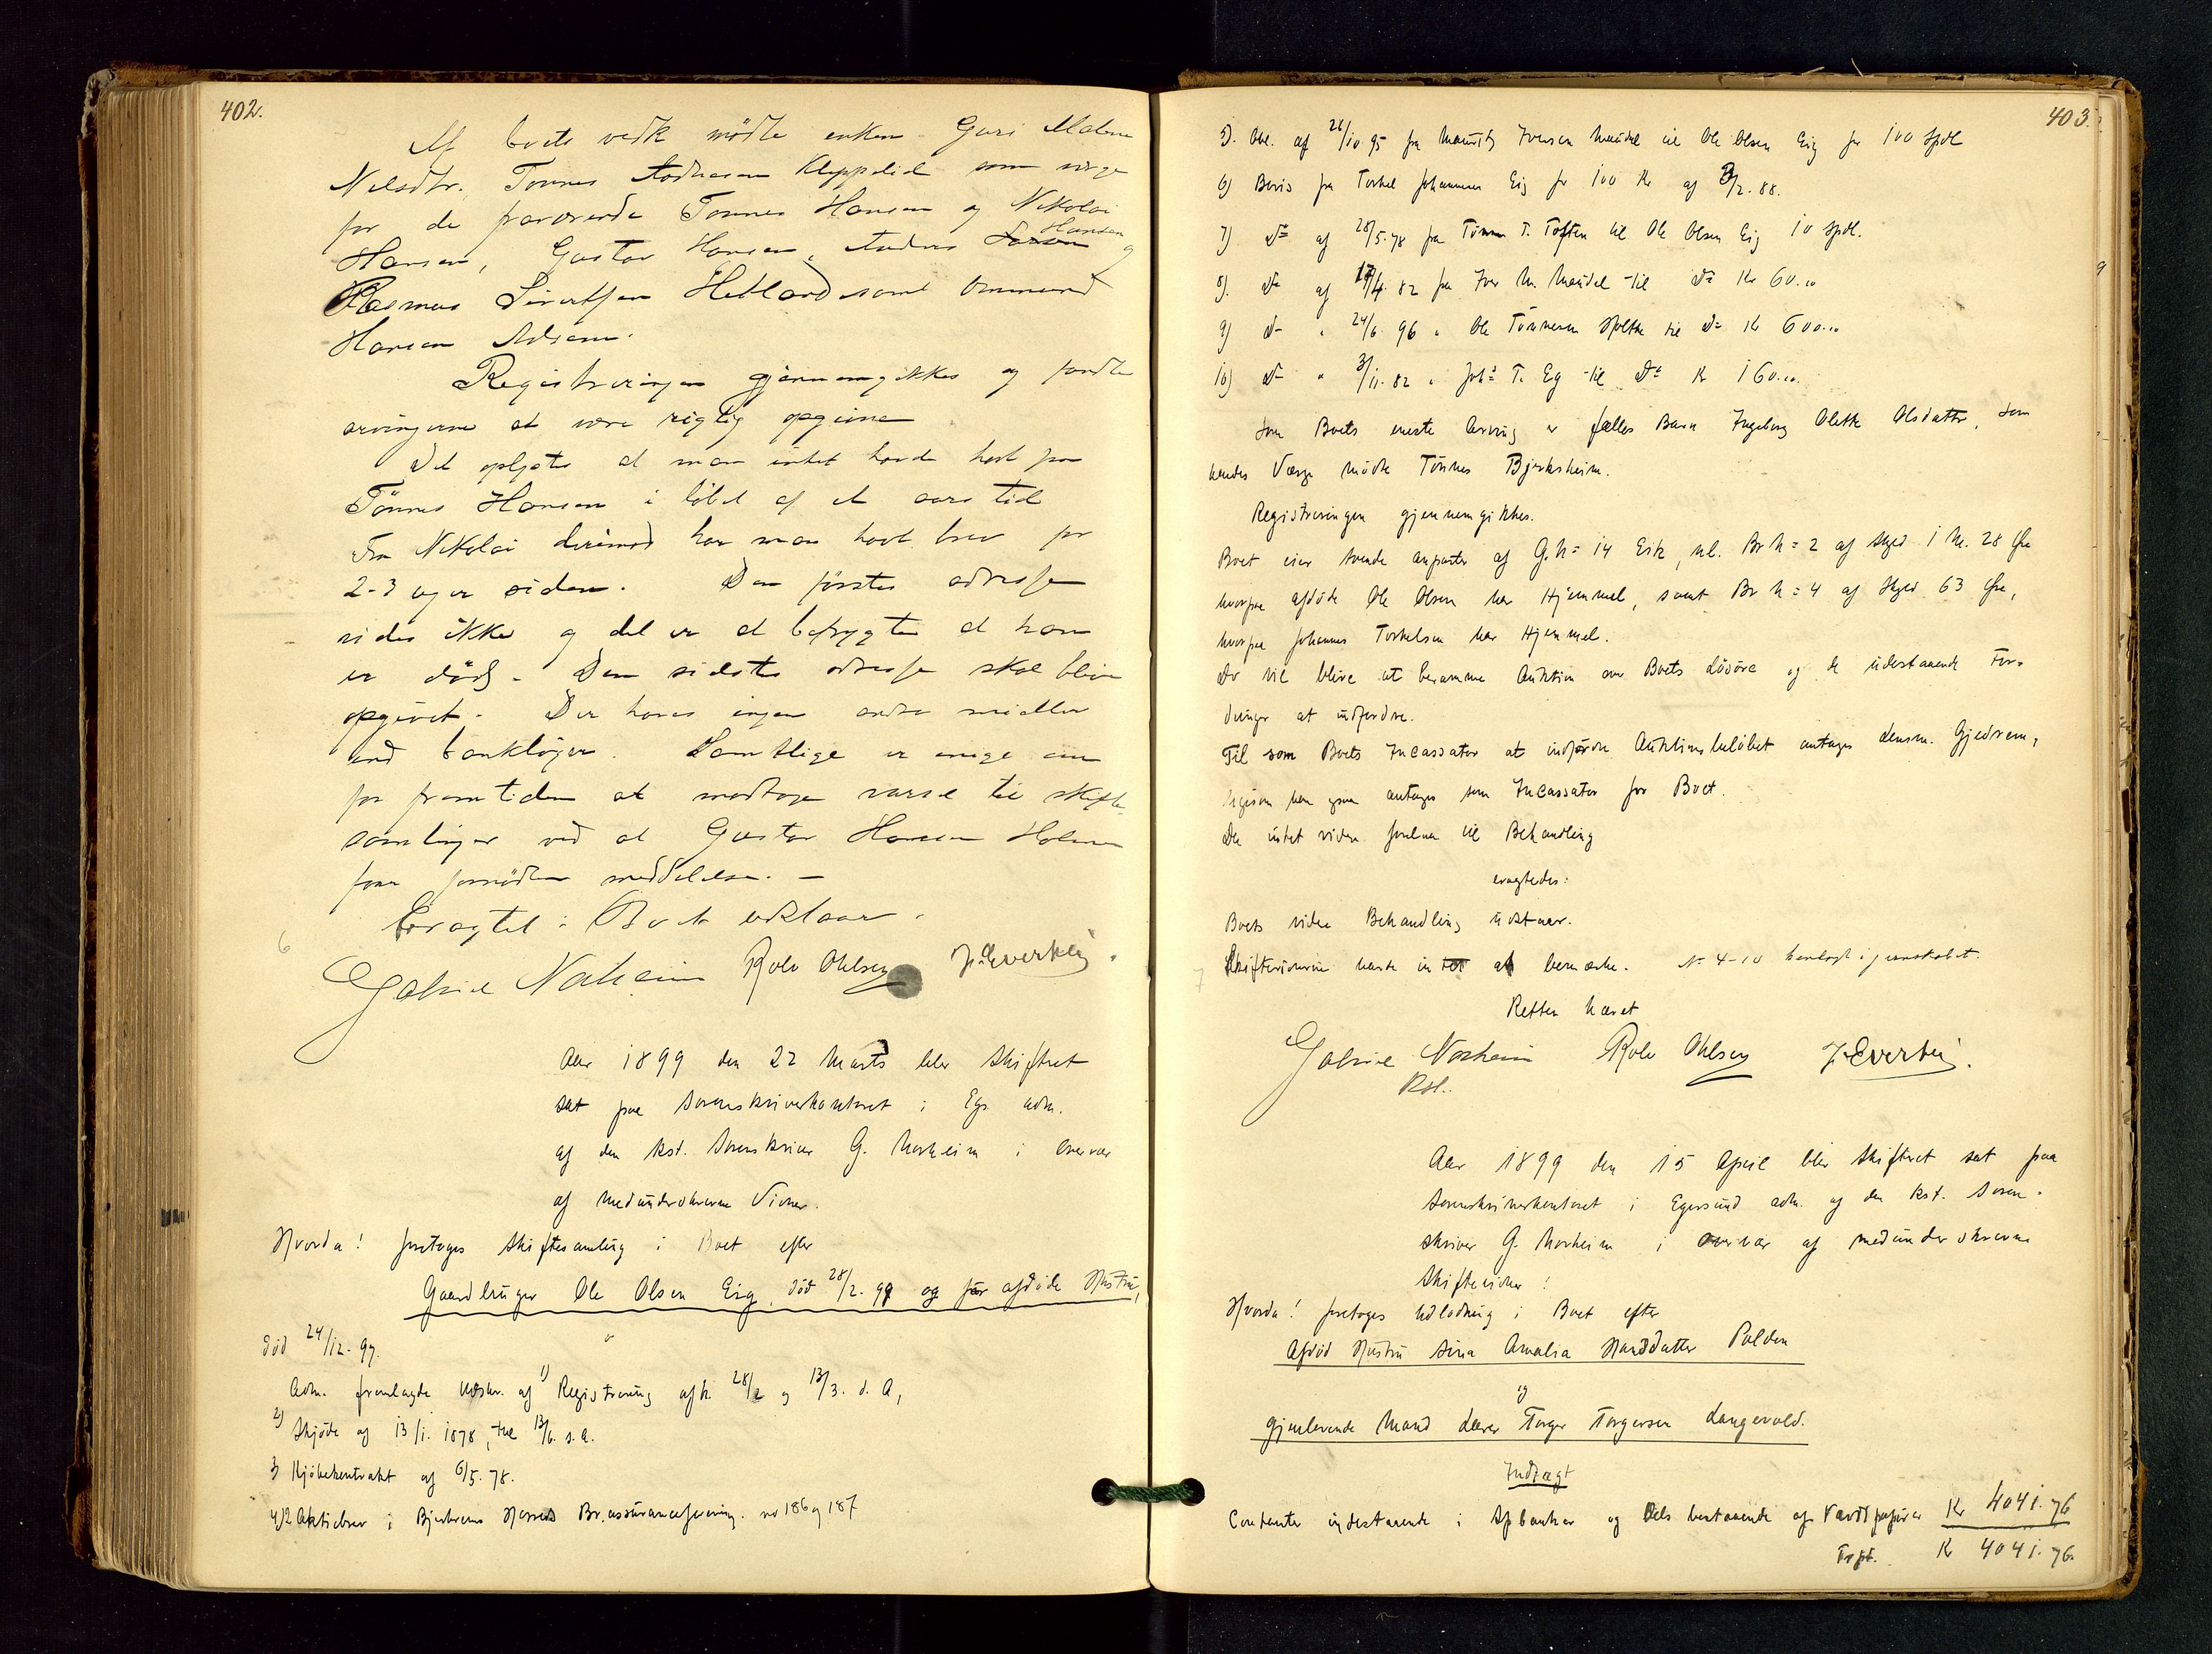 402.
Af boets vedk mødte enken Guri Malene
Nilsdtr. Tønnes Andreasen Kleppelid som verge
for de fraværende Tønnes Hansen og Nikolai
Hansen, Gustav Hansen, Andreas Hansen og
Rasmus Sivertsen Hetland samt Ommund
Hansen
Registreringen gjennemgikkes og fandtes
arvingerne at være rigtig opgivne
Det oplystes at man intet havde hørt fra
Tönnes Hansen i løbet af et aars tid
Fra Nikolai derimod har man havt brev for
2-3 uger siden. Den førstes adresse
vides ikke og det er at befrygte at han
er død. Den sidstes adresse skal blive
opgivet. Der haves ingen andre midler
end bankbøger. Samtlige er enige om
for fremtiden at modtage varsel til skifte-
samlinger ved at Gustav Hansen
faar fornøden meddelelse. —
Eragtet: Boet udstaar.
Gabriel Norheim Rolv Ohlsen
Aar 1899 den 22 Marts blev Skifteret
sat paa Sorenskriverkontoret i Egs. adm.
af den kst. Sorenskriver G. Norheim i Overvær
af medunderskrevne Vidner.
Hvorda! foretoges Skiftesamling i Boet efter
Gaardbruger Ole Olsen Eig, død 28/2. 99 og før afdöde Hustru,
død 24/12. 97.
Adm. fremlagde Udskr. af 1) Registrering afh. 28/2 og 13/3. d. A,
2) Skjöde af 13/1. 1878, thl 13/6. s.A.
3) Kjöbekontrakt af 6/5. 78.
4) 2 Aktiebrev i Bjerkrems Herreds Br.assuranceforening. no 186 og 187
403.
5). Obl. af 26/10. 95 fra Mauritz Iversen Maudal til Ole Olsen Eig for 100 Spdl
6) Bevis fra Torkel Johannessen Eig for 100 Kr af 3/2. 88.
7) Do af 28/5. 78 fra Tönnes T. Toften til Ole Olsen Eig 10 Spdl.
8). Do af 17/4. 82 fra Iver M. Maudal til Do Kr 60.00
9) Do " 24/6. 96 " Ole Tönnesen til Do Kr 600.00
10) Do " 3/11. 82 " Johs T. Eg til Do Kr 160.00.
Som Boets eneste Arving er fælles Barn Ingeborg Olette Olsdatter, som
hendes Værge mödte Tönnes Bjerkreim.
Registreringen gjennemgikkes.
Boet eier tvende anparter af G.N= 14 Eik, nl. Br N= 2 af Skyld 1 M. 28 Øre
hvorpaa afdöde Ole Olsen har Hjemmel, samt Br N= 4 af Skyld 63 Øre,
hvorpaa Johannes Torkelsen har Hjemmel.
Der vil blive at beramme Auktion over Boets Lösöre og de udestaaende For-
dringer at indfordre.
Til som Boets Incassator at indfordre Auktionsbelöbet antages lensm. Gjedrem,
ligesom han ogsaa antages som Incassator for Boet.
Da intet videre forelaa til Behandling
eragtedes:
Boets videre Behandling udstaar.
Skiftevidnerne havde intet at bemærke. No 4-10 henlagt i jernskabet.
Retten hævet
Gabriel Norheim Rolv Ohlsen
Kst.
Aar 1899 den 15 April blev Skifteret sat paa
Sorenskriverkontoret i Egersund adm. af den kst. Soren-
skriver G. Norheim i overvær af medunderskrevne
Skiftevidner!
Hvorda! foretoges Udlodning i Boet efter
Afdöd Hustru Sina Amalia Polden
og
gjenlevende Mand Lærer Torger Torgersen Langevold.
Indtægt
Contanter indestaaende i Spbanker og dels bestaaende af Værdipapirer Kr 4041.76
Trpt. Kr 4041.76